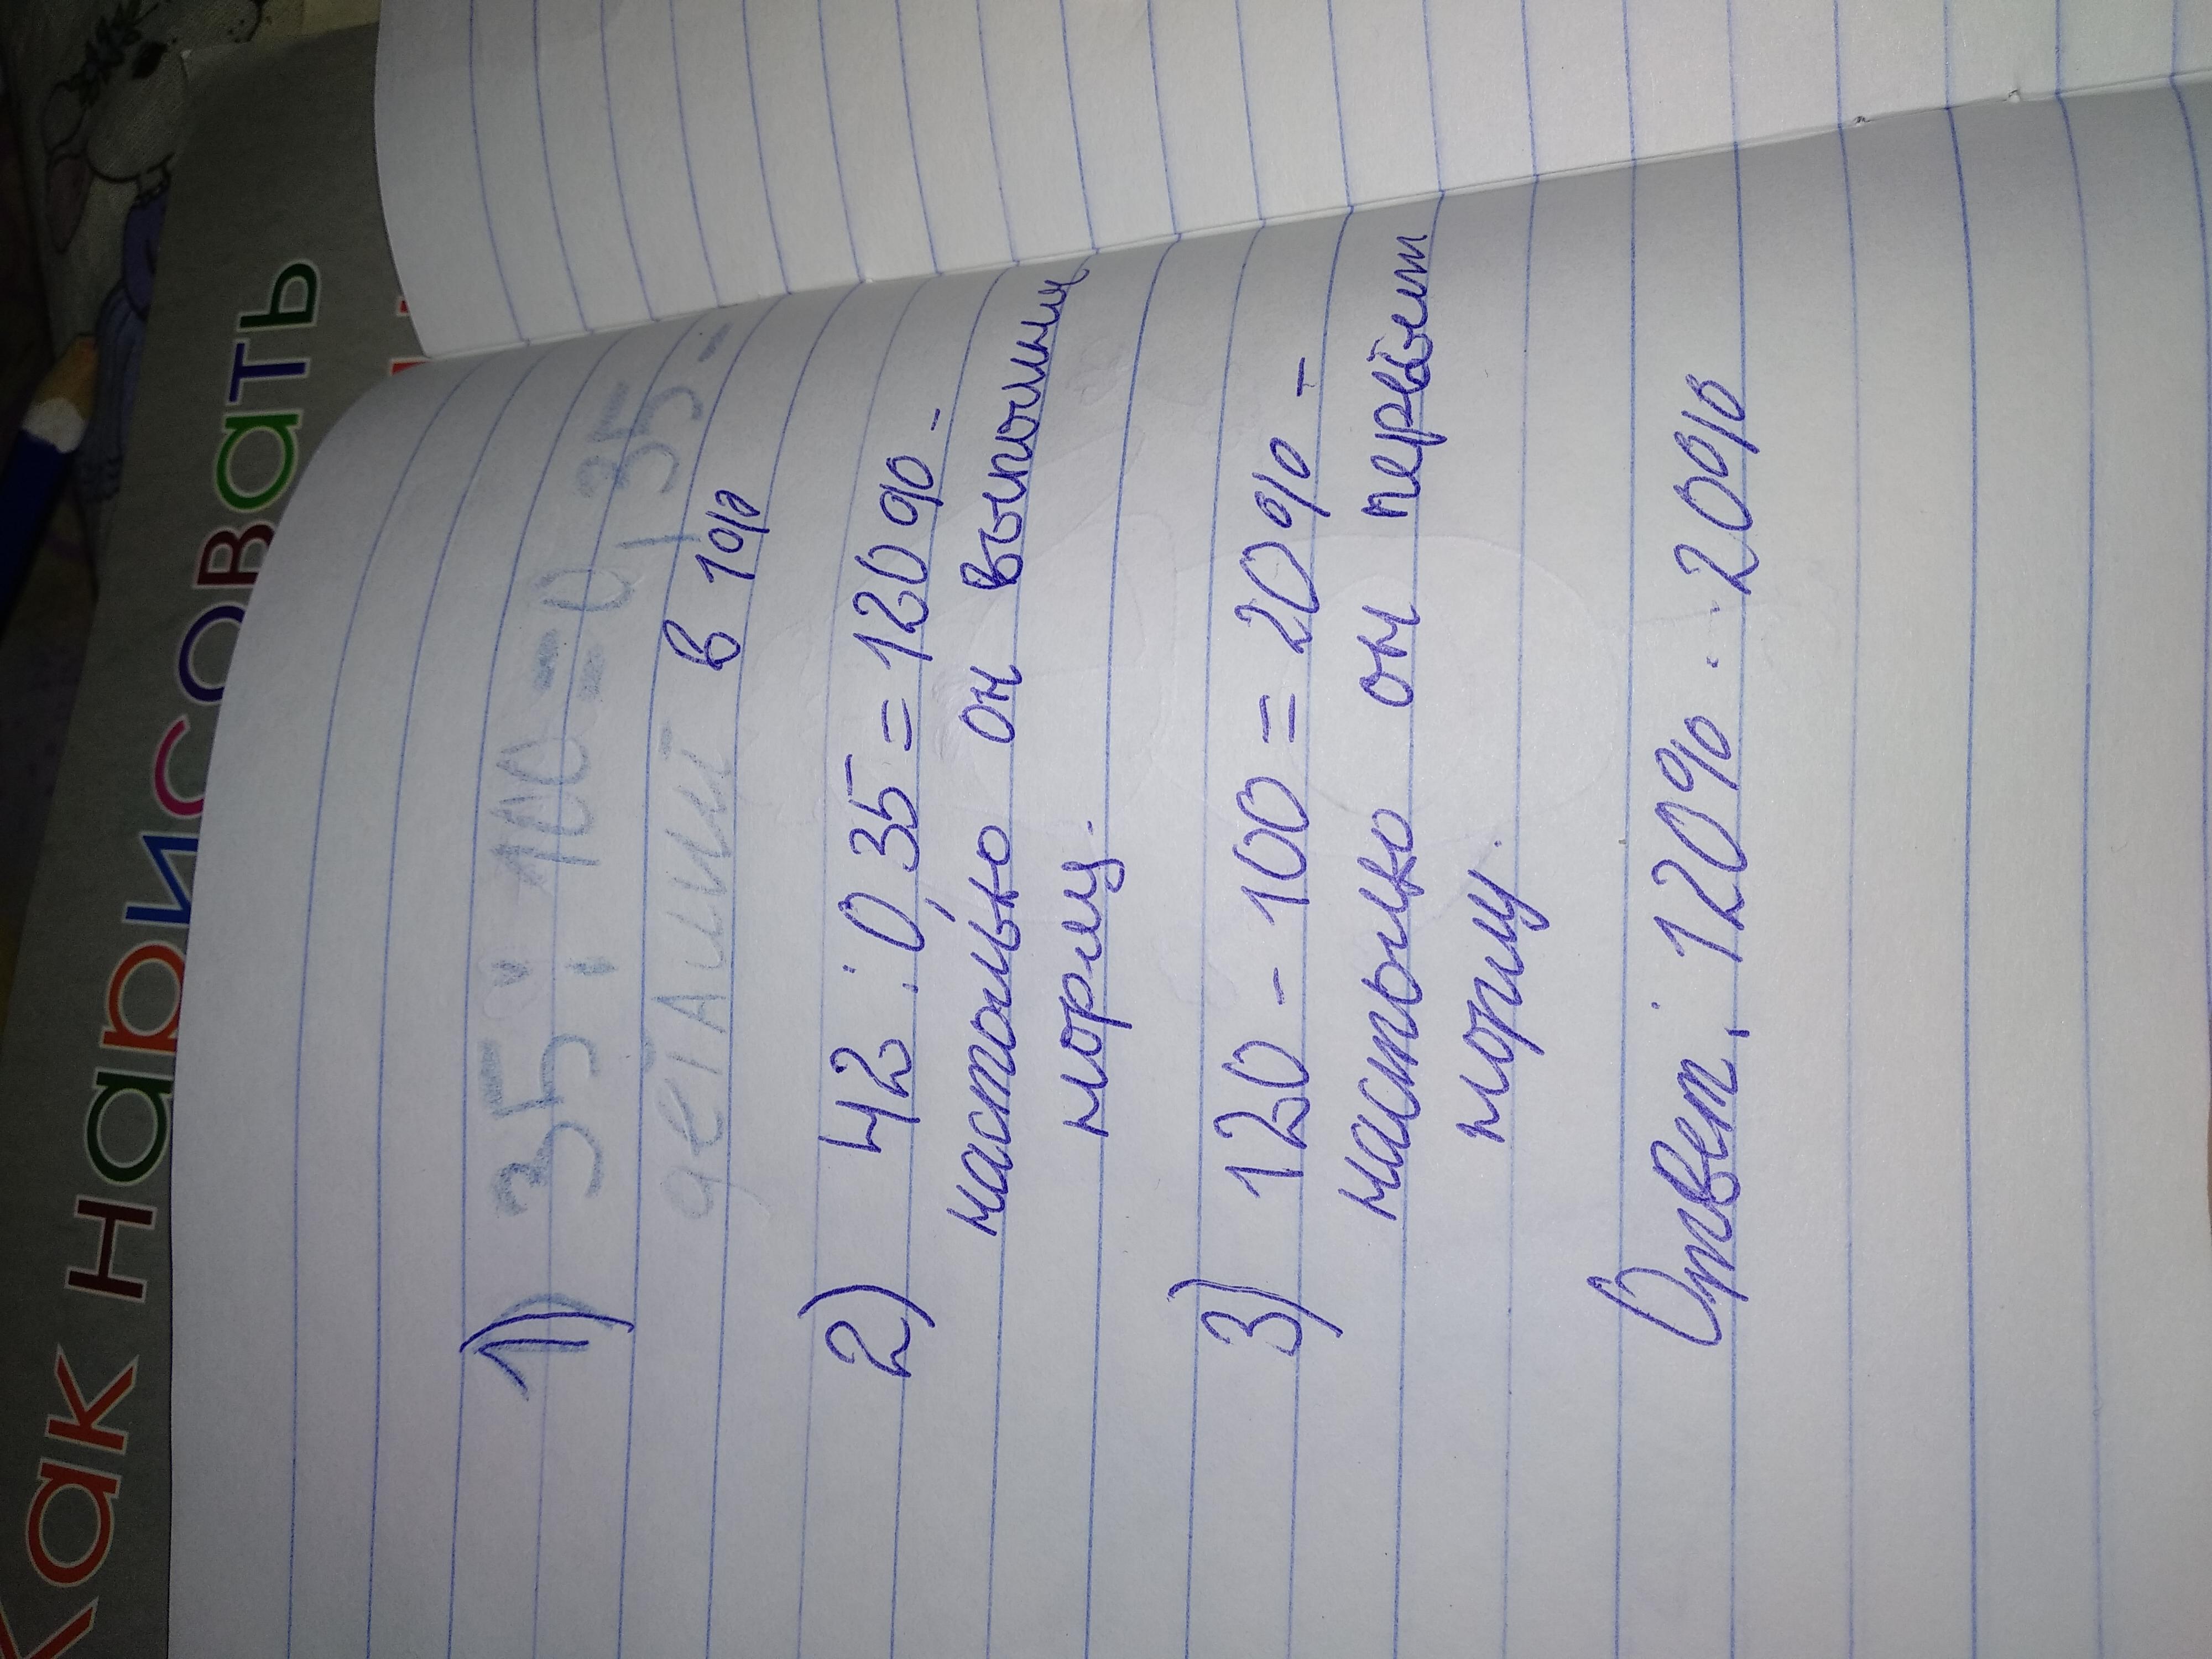 Как нарисовать
1) 35 : 100 = 0,35 -
деталий в 1%
2) 42 : 0,35 = 120% -
настолько он выполнил
норму.
3) 120 - 100 = 20% -
настолько он первып
норму.
Ответ: 120%. 20%